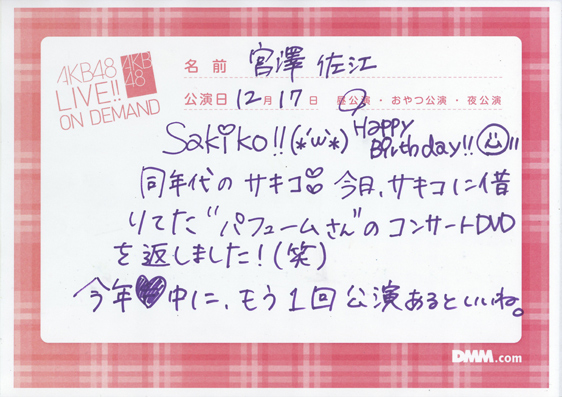 AKB48
LIVE!!
ON DEMAND
AKB
48
名前 宮澤 佐江
公演日 12月17日 昼公演・おやつ公演・夜公演
Sakiko!! (*´ω`*) Happy Birthday!!
同年代の サキコ 今日、サキコに借
りてた"パフュームさん"のコンサートDVD
を返しました!(笑)
今年♥中に、もう1回公演あるといいね。
DMM.com